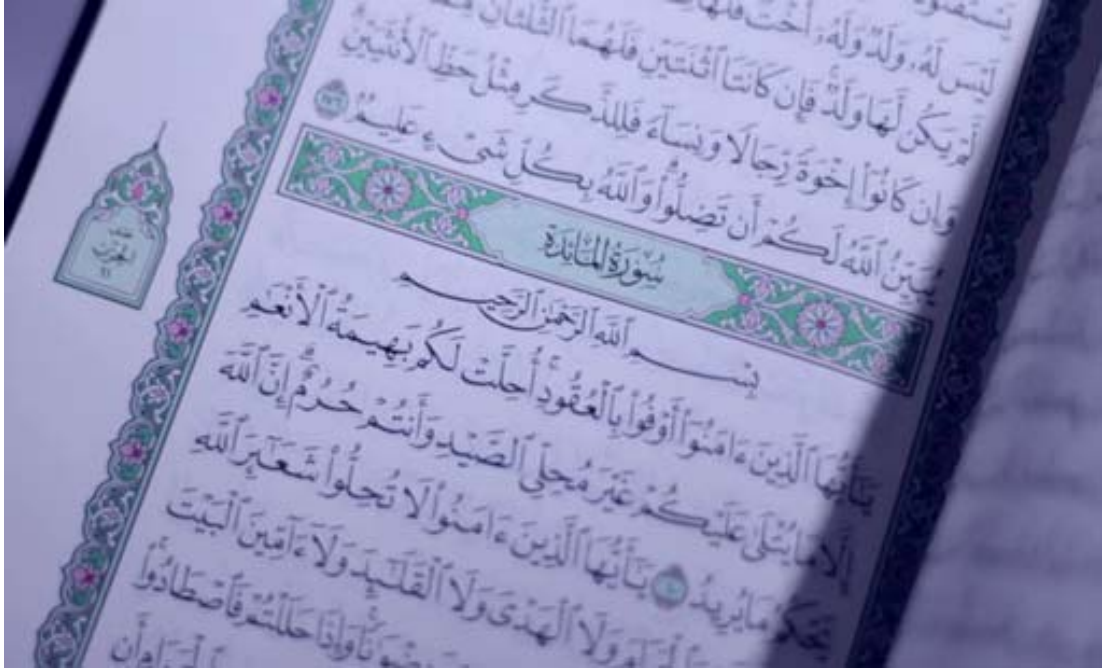 لَيْسَ لَهُۥ وَلَدٌ وَلَهُۥٓ أُخْتٌ فَلَهَا
لَمْ يَكُن لَّهَا وَلَدٌ فَإِن كَانَتَا ٱثْنَتَيْنِ فَلَهُمَا ٱلثُّلُثَانِ
وَإِن كَانُوٓا۟ إِخْوَةً رِّجَالًا وَنِسَآءً فَلِلذَّكَرِ مِثْلُ حَظِّ ٱلْأُنثَيَيْنِ
يُبَيِّنُ ٱللَّهُ لَكُمْ أَن تَضِلُّوا۟ وَٱللَّهُ بِكُلِّ شَىْءٍ عَلِيمٌۢ ١٧٦
سُورَةُ المَائِدَةِ
بِسْمِ ٱللَّهِ ٱلرَّحْمَٰنِ ٱلرَّحِيمِ
يَٰٓأَيُّهَا ٱلَّذِينَ ءَامَنُوٓا۟ أَوْفُوا۟ بِٱلْعُقُودِ أُحِلَّتْ لَكُم بَهِيمَةُ ٱلْأَنْعَٰمِ
إِلَّا مَا يُتْلَىٰ عَلَيْكُمْ غَيْرَ مُحِلِّى ٱلصَّيْدِ وَأَنتُمْ حُرُمٌ إِنَّ ٱللَّهَ
يَحْكُمُ مَا يُرِيدُ ١ يَٰٓأَيُّهَا ٱلَّذِينَ ءَامَنُوا۟ لَا تُحِلُّوا۟ شَعَٰٓئِرَ ٱللَّهِ
وَلَا ٱلْهَدْىَ وَلَا ٱلْقَلَٰٓئِدَ وَلَآ ءَآمِّينَ ٱلْبَيْتَ
وَإِذَا حَلَلْتُمْ فَٱصْطَادُوا۟
أَن
نصف
الحزب
١١